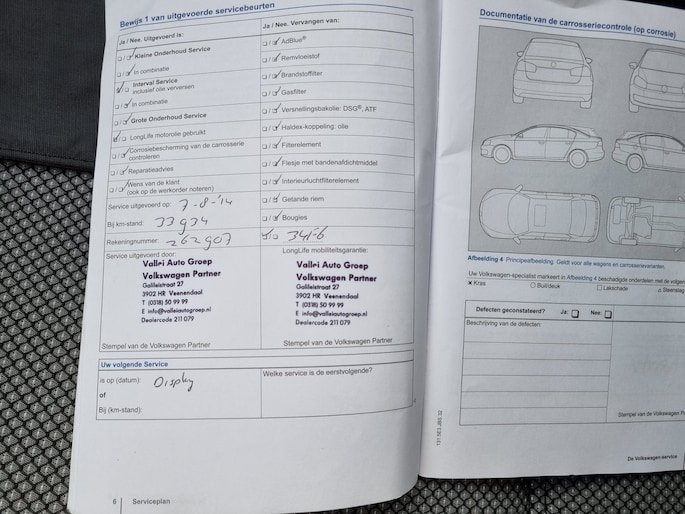 Bewijs 1 van uitgevoerde servicebeurten
Ja / Nee. Uitgevoerd is:
Kleine Onderhoud Service
In combinatie
Interval Service
inclusief olie verversen
In combinatie
Grote Onderhoud Service
LongLife motorolie gebruikt
Corrosiebescherming van de carrosserie
controleren
Reparatieadvies
Wens van de klant
(ook op de werkorder noteren)
Service uitgevoerd op: 7-8-'14
Bij km-stand: 33934
Rekeningnummer: 262907
Service uitgevoerd door:
Vallei Auto Groep
Volkswagen Partner
Galileistraat 27
3902 HR Veenendaal
T (0318) 50 99 99
E info@valleiautogroep.nl
Dealercode 211 079
Stempel van de Volkswagen Partner
Ja / Nee. Vervangen van:
AdBlue®
Remvloeistof
Brandstoffilter
Gasfilter
Versnellingsbakolie: DSG®, ATF
Haldex-koppeling: olie
Filterelement
Flesje met bandenafdichtmiddel
Interieurluchtfilterelement
Getande riem
Bougies
LongLife mobiliteitsgarantie:
Vallei Auto Groep
Volkswagen Partner
Galileistraat 27
3902 HR Veenendaal
T (0318) 50 99 99
E info@valleiautogroep.nl
Dealercode 211 079
Stempel van de Volkswagen Partner
Uw volgende Service
is op (datum): Display
of
Bij (km-stand):
Welke service is de eerstvolgende?
6 Serviceplan
Documentatie van de carrosseriecontrole (op corrosie)
Afbeelding 4 Principeafbeelding. Geldt voor alle wagens en carrosserievarianten.
Uw Volkswagen-specialist markeert in Afbeelding 4 beschadigde onderdelen met de
× Kras Buil/deuk Lakschade
Defecten geconstateerd? Ja: Nee:
Beschrijving van de defecten:
Stempel van de Volkswagen
De Volkswagen-service